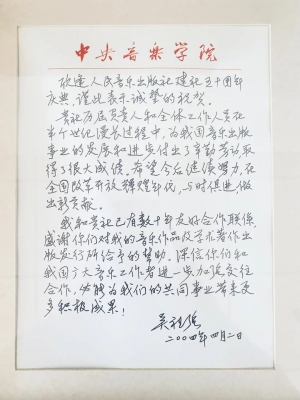 中央音乐学院
欣逢人民音乐出版社建社五十周年
庆典，谨此表示诚挚的祝贺。
贵社历届负责人和全体工作人员在
半个世纪漫长过程中，为我国音乐出版
事业的发展和进步付出了辛勤劳动取
得了很大成绩。希望今后继续努力，在
全国改革开放辉煌年代，与时俱进做
出新贡献。
我和贵社已有数十年友好合作联系，
感谢你们对我的音乐作品及学术著作出
版发行所给予的帮助。深信你们和
我国广大音乐工作者进一步加强交往
合作，必将为我们的共同事业带来更
多积极成果！
吴祖强
二〇〇四年四月二日